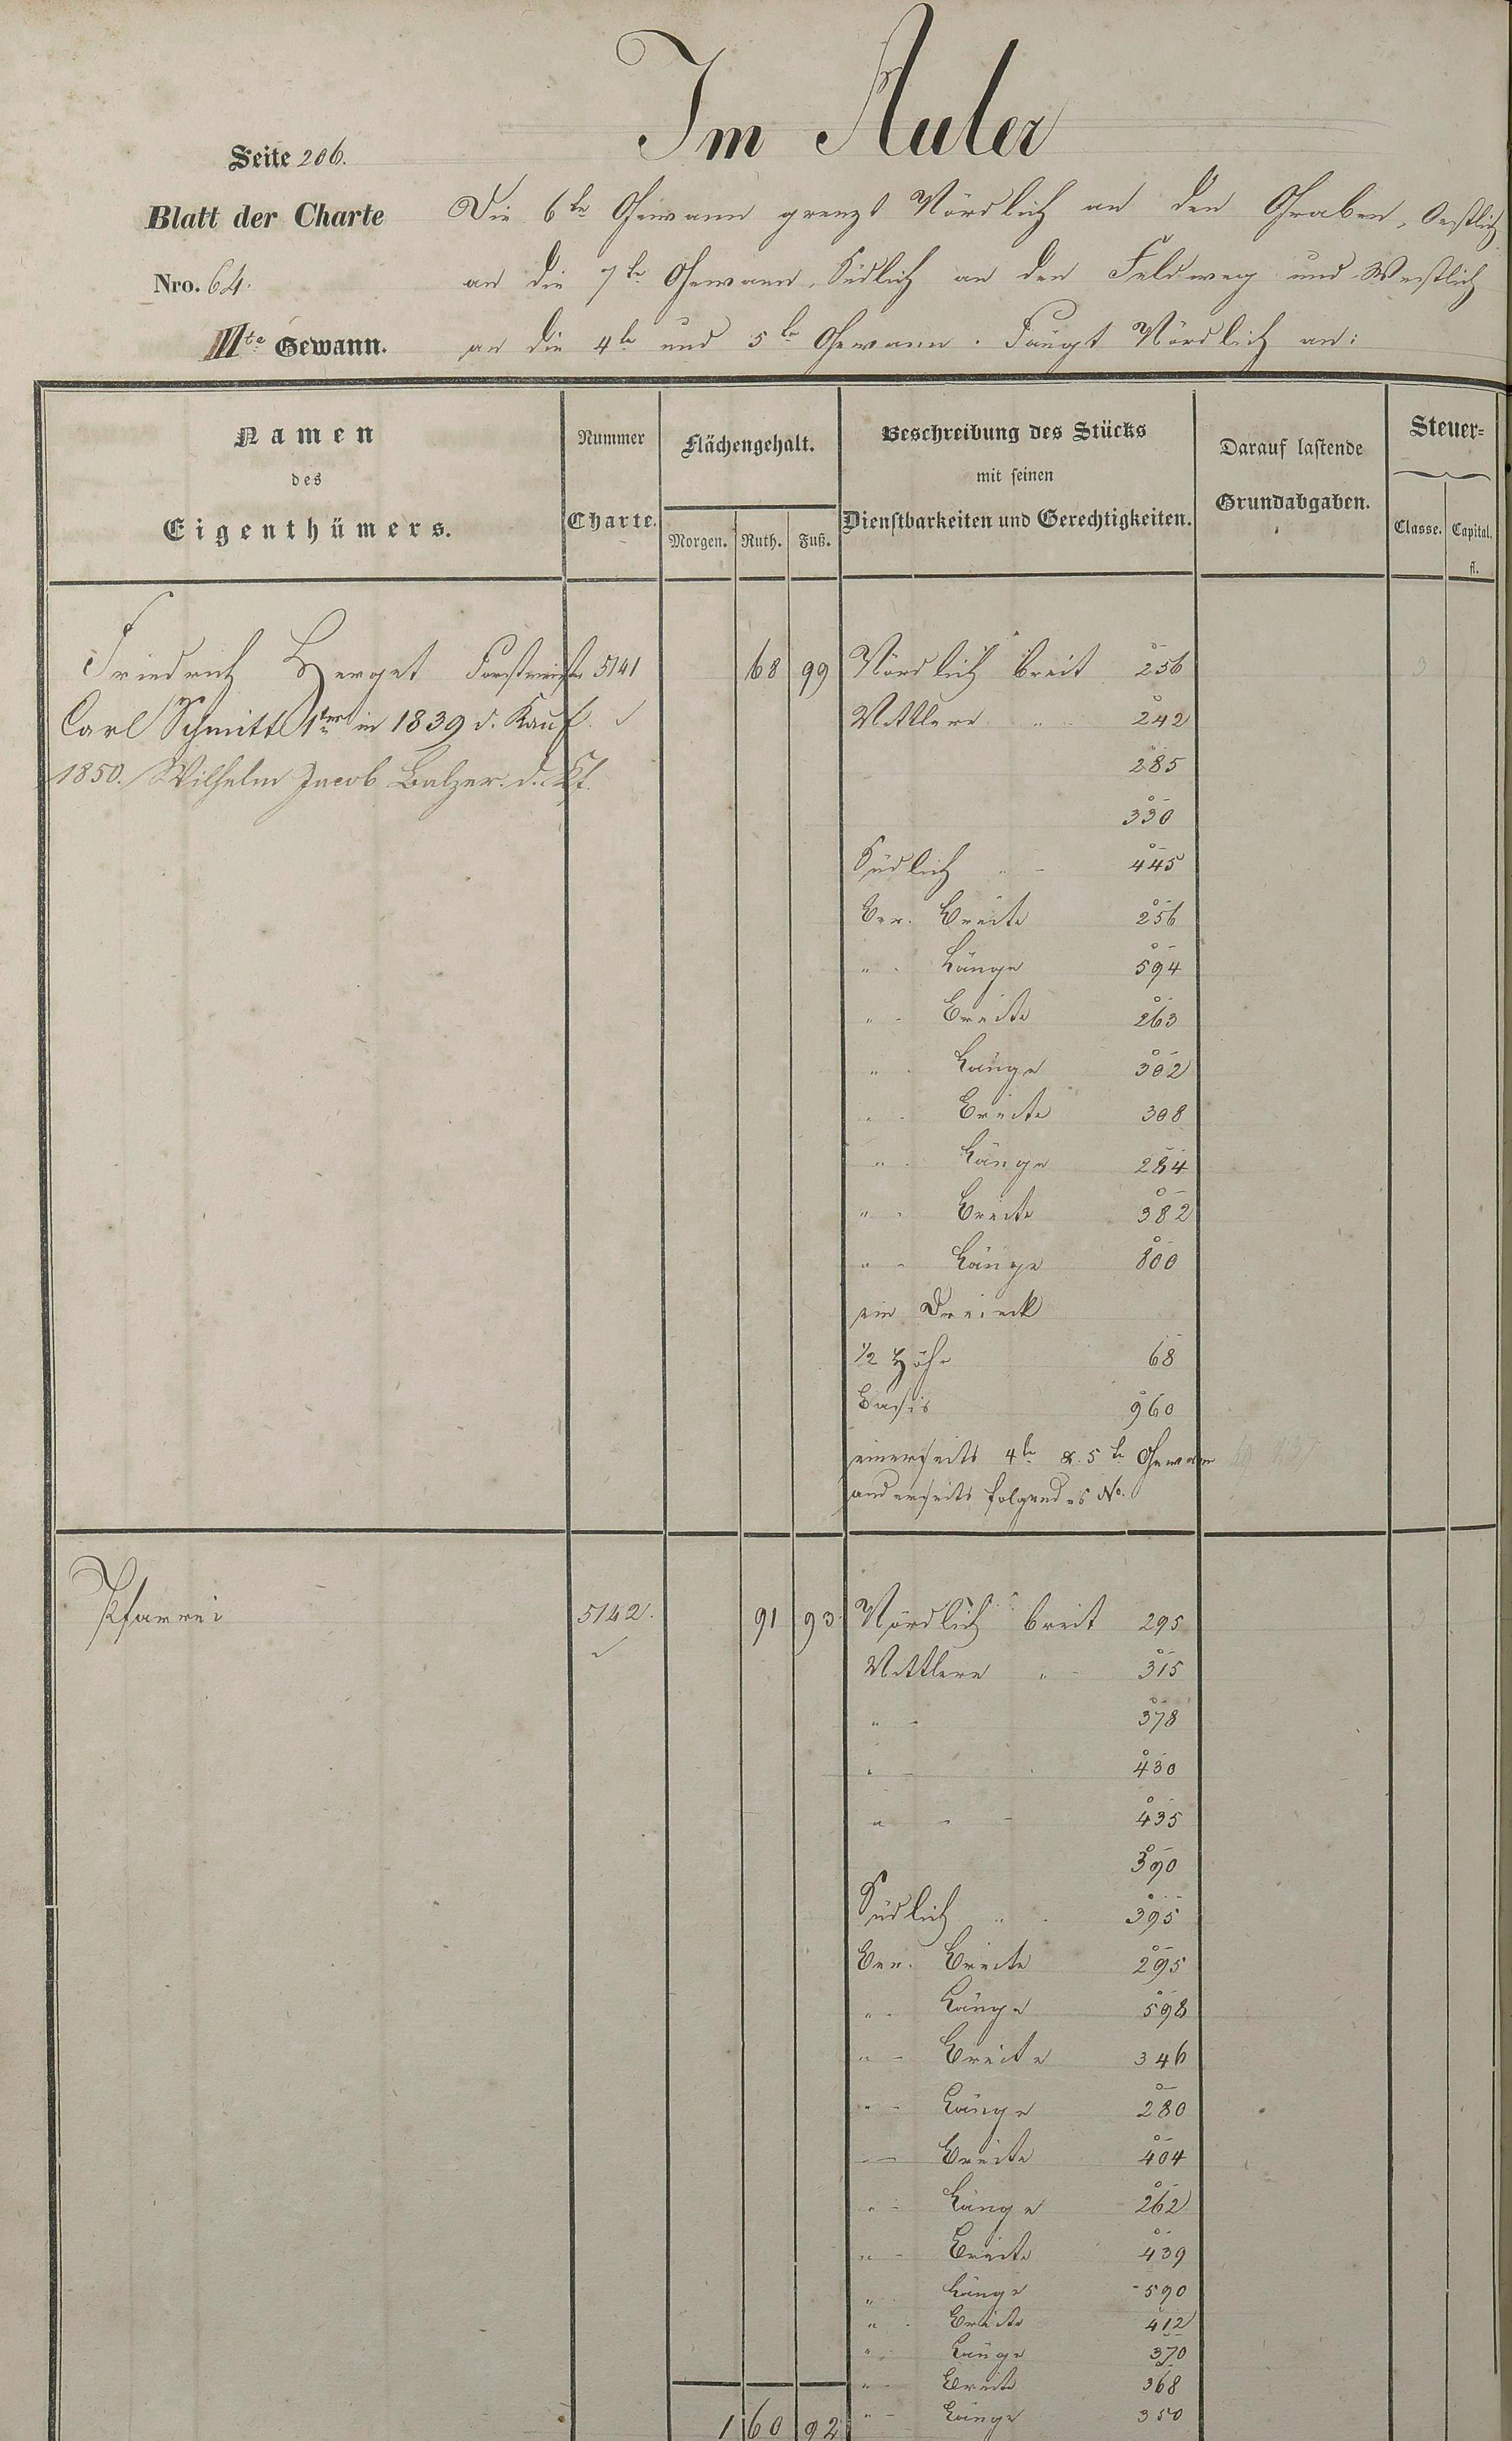 Im Auler
Seite 206.
Blatt der Charte
Nro. 64.
IIIte Gewann.
Die 6te Gewann grenzt Nördlich an den Graben, Oestlich
an die 7te Gewann, Südlich an den Feldweg und Westlich
an die 4te und 5te Gewann. Fängt Nördlich an:
Namen des Eigenthümers.
Nummer Charte.
Flächengehalt.
Morgen. Ruth. Fuß.
Beschreibung des Stücks
mit seinen
Dienstbarkeiten und Gerechtigkeiten.
Darauf lastende
Grundabgaben.
Steuer-
Classe. Capital.
fl.
Friedrich Herget Forstmeister 5141 68 99 Nördlich breit 256
Carl Schmitt 1ter in 1839 d. Kauf. Mittlere " 242
1850. Wilhelm Jacob Balzer. d. Kf. 285
330
Südlich " 445
Ver. Breite 256
" Länge 594
" Breite 263
" Länge 302
" Breite 308
" Länge 284
" Breite 382
" Länge 800
ein Dreieck
1/2 Höhe 68
Basis 960
einerseits 4te & 5te Gewann
anderseits folgendes No.
Pfarrei 5142. 91 93 Nördlich breit 295
Mittlere " 315
" 378
" 430
" 435
390
Südlich " 395
Ver. Breite 295
" Länge 598
" Breite 346
" Länge 280
" Breite 404
" Länge 262
" Breite 439
" Länge 590
" Breite 412
" Länge 370
" Breite 368
" Länge 350
1 60 92